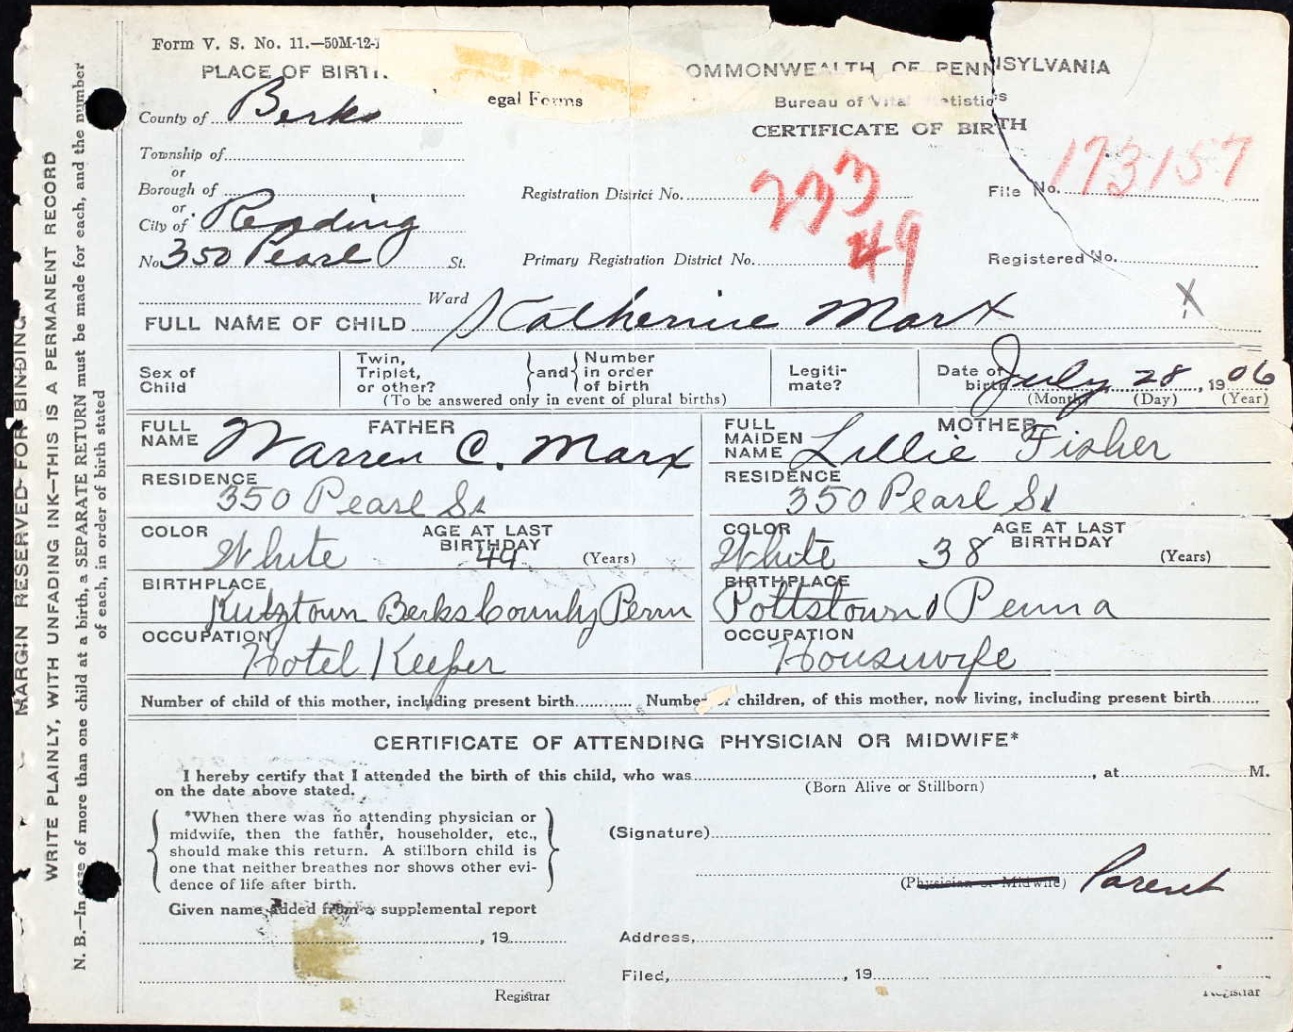 Form V. S. No. 11.—50M-12-
PLACE OF BIRTH.
COMMONWEALTH OF PENNSYLVANIA
egal Forms
Bureau of Vital Statistics
CERTIFICATE OF BIRTH
County of Berks
Township of
or
Borough of
or
City of Reading
No. 350 Pearl St.
Ward
Registration District No. 233
File No. 173157
49
Primary Registration District No.
Registered No.
X
FULL NAME OF CHILD Katherine Marx
Sex of Child
Twin, Triplet, or other? } and { Number in order of birth
(To be answered only in event of plural births)
Legiti-mate?
Date of birth July 28, 1906
(Month) (Day) (Year)
FATHER
FULL NAME Warren C. Marx
MOTHER
FULL MAIDEN NAME Lillie Fisher
RESIDENCE 350 Pearl St
RESIDENCE 350 Pearl St
COLOR White AGE AT LAST BIRTHDAY 49 (Years)
COLOR White 38 AGE AT LAST BIRTHDAY (Years)
BIRTHPLACE Kutztown Berks County Penn
BIRTHPLACE Pottstown Penna
OCCUPATION Hotel Keeper
OCCUPATION Housewife
Number of child of this mother, including present birth Number of children, of this mother, now living, including present birth
CERTIFICATE OF ATTENDING PHYSICIAN OR MIDWIFE*
I hereby certify that I attended the birth of this child, who was , at M.
on the date above stated.
(Born Alive or Stillborn)
*When there was no attending physician or
midwife, then the father, householder, etc.,
should make this return. A stillborn child is
one that neither breathes nor shows other evi-
dence of life after birth.
(Signature)
(Physician or Midwife) Parent
Given name added from a supplemental report
, 19
Address,
Filed, , 19
Registrar
Registrar
MARGIN RESERVED FOR BINDING
WRITE PLAINLY, WITH UNFADING INK—THIS IS A PERMANENT RECORD
N. B.—In case of more than one child at a birth, a SEPARATE RETURN must be made for each, and the number
of each, in order of birth stated